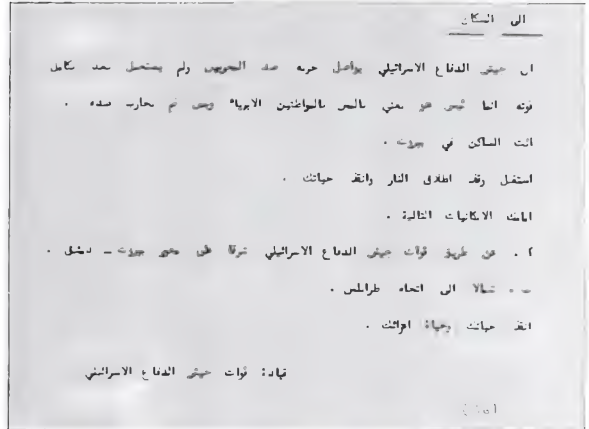 الى السكان
ان جيش الدفاع الاسرائيلي يواصل حربه ضد المخربين ولم يستعمل بعد كامل
قوته انما جيش هو معني بالمس بالمواطنين الابرياء ومن لم يحارب ضده .
انت الساكن في بيروت .
استغل وقف اطلاق النار وانقذ حياتك .
امامك الامكانيات التالية .
أ . عن طريق قوات جيش الدفاع الاسرائيلي شرقا على محور بيروت - دمشق .
ب . شمالا الى اتجاه طرابلس .
انقذ حياتك وحياة اعزائك .
قيادة قوات جيش الدفاع الاسرائيلي